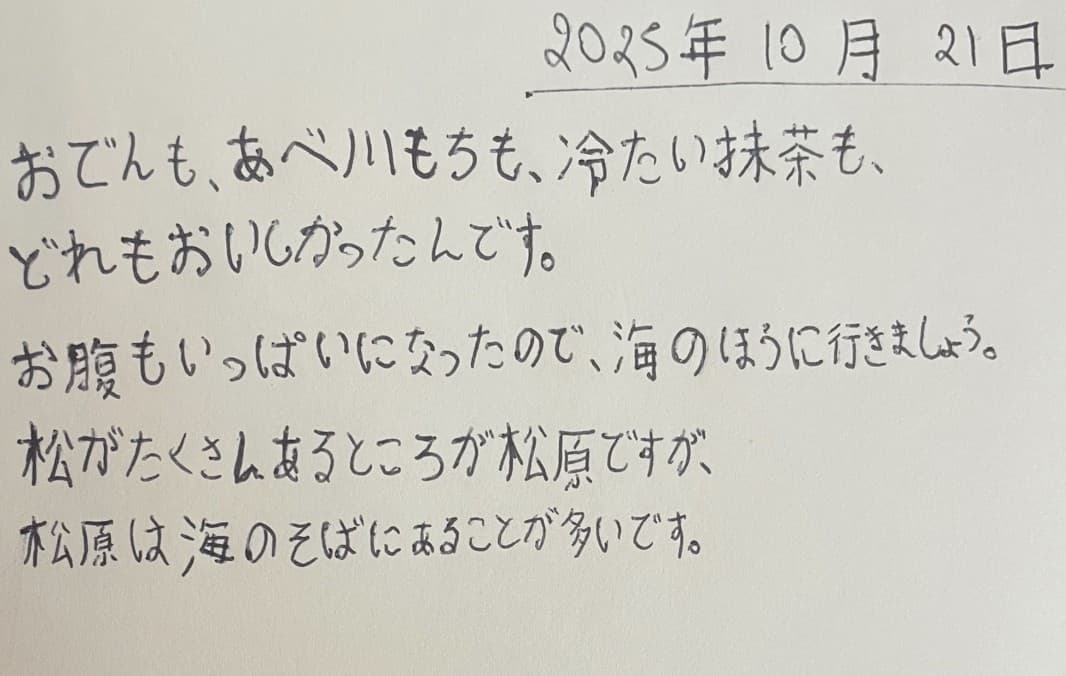 2025年 10月 21日
おでんも、あべ川もちも、冷たい抹茶も、
どれもおいしかったんです。
お腹もいっぱいになったので、海のほうに行きましょう。
松がたくさんあるところが松原ですが、
松原は海のそばにあることが多いです。